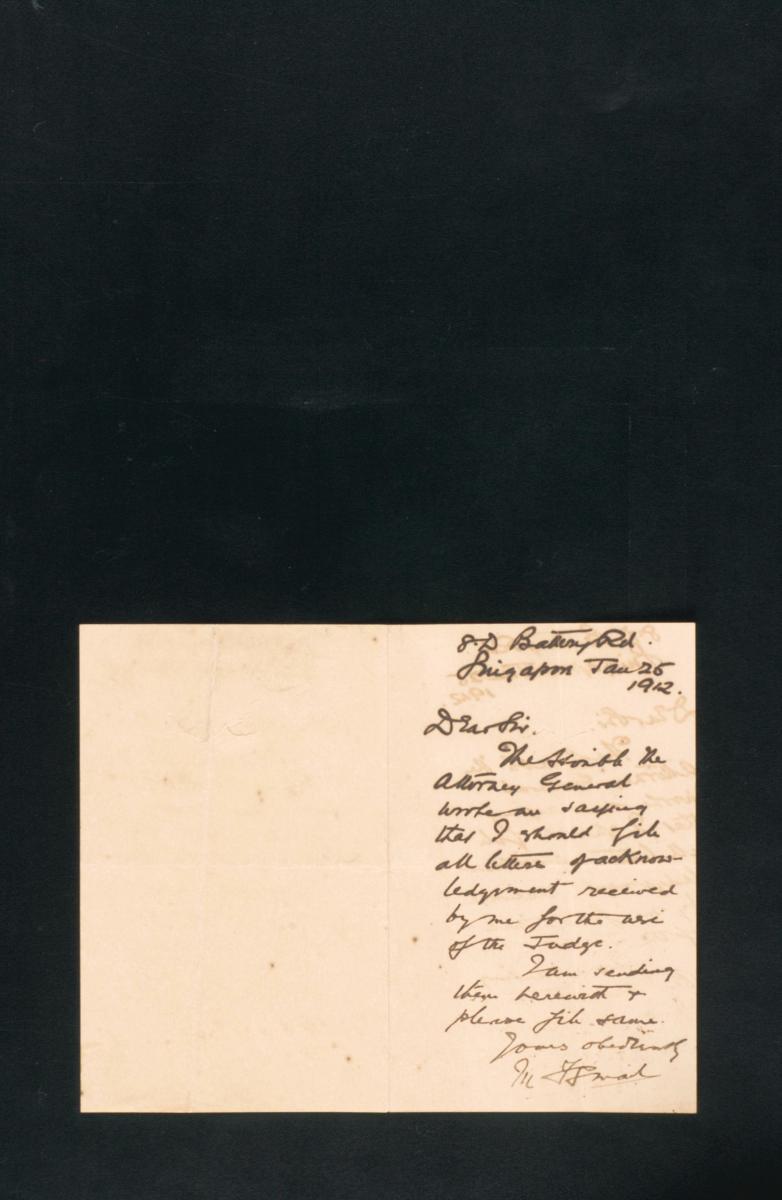 8-D Battery Rd.
Singapore Jan 25
1912.
Dear Sir.
The Honble the
Attorney General
wrote me saying
that I should file
all letters of acknow-
ledgement received
by me for the use
of the Judge.
I am sending
them herewith &
please file same.
Yours obediently
M Ismail